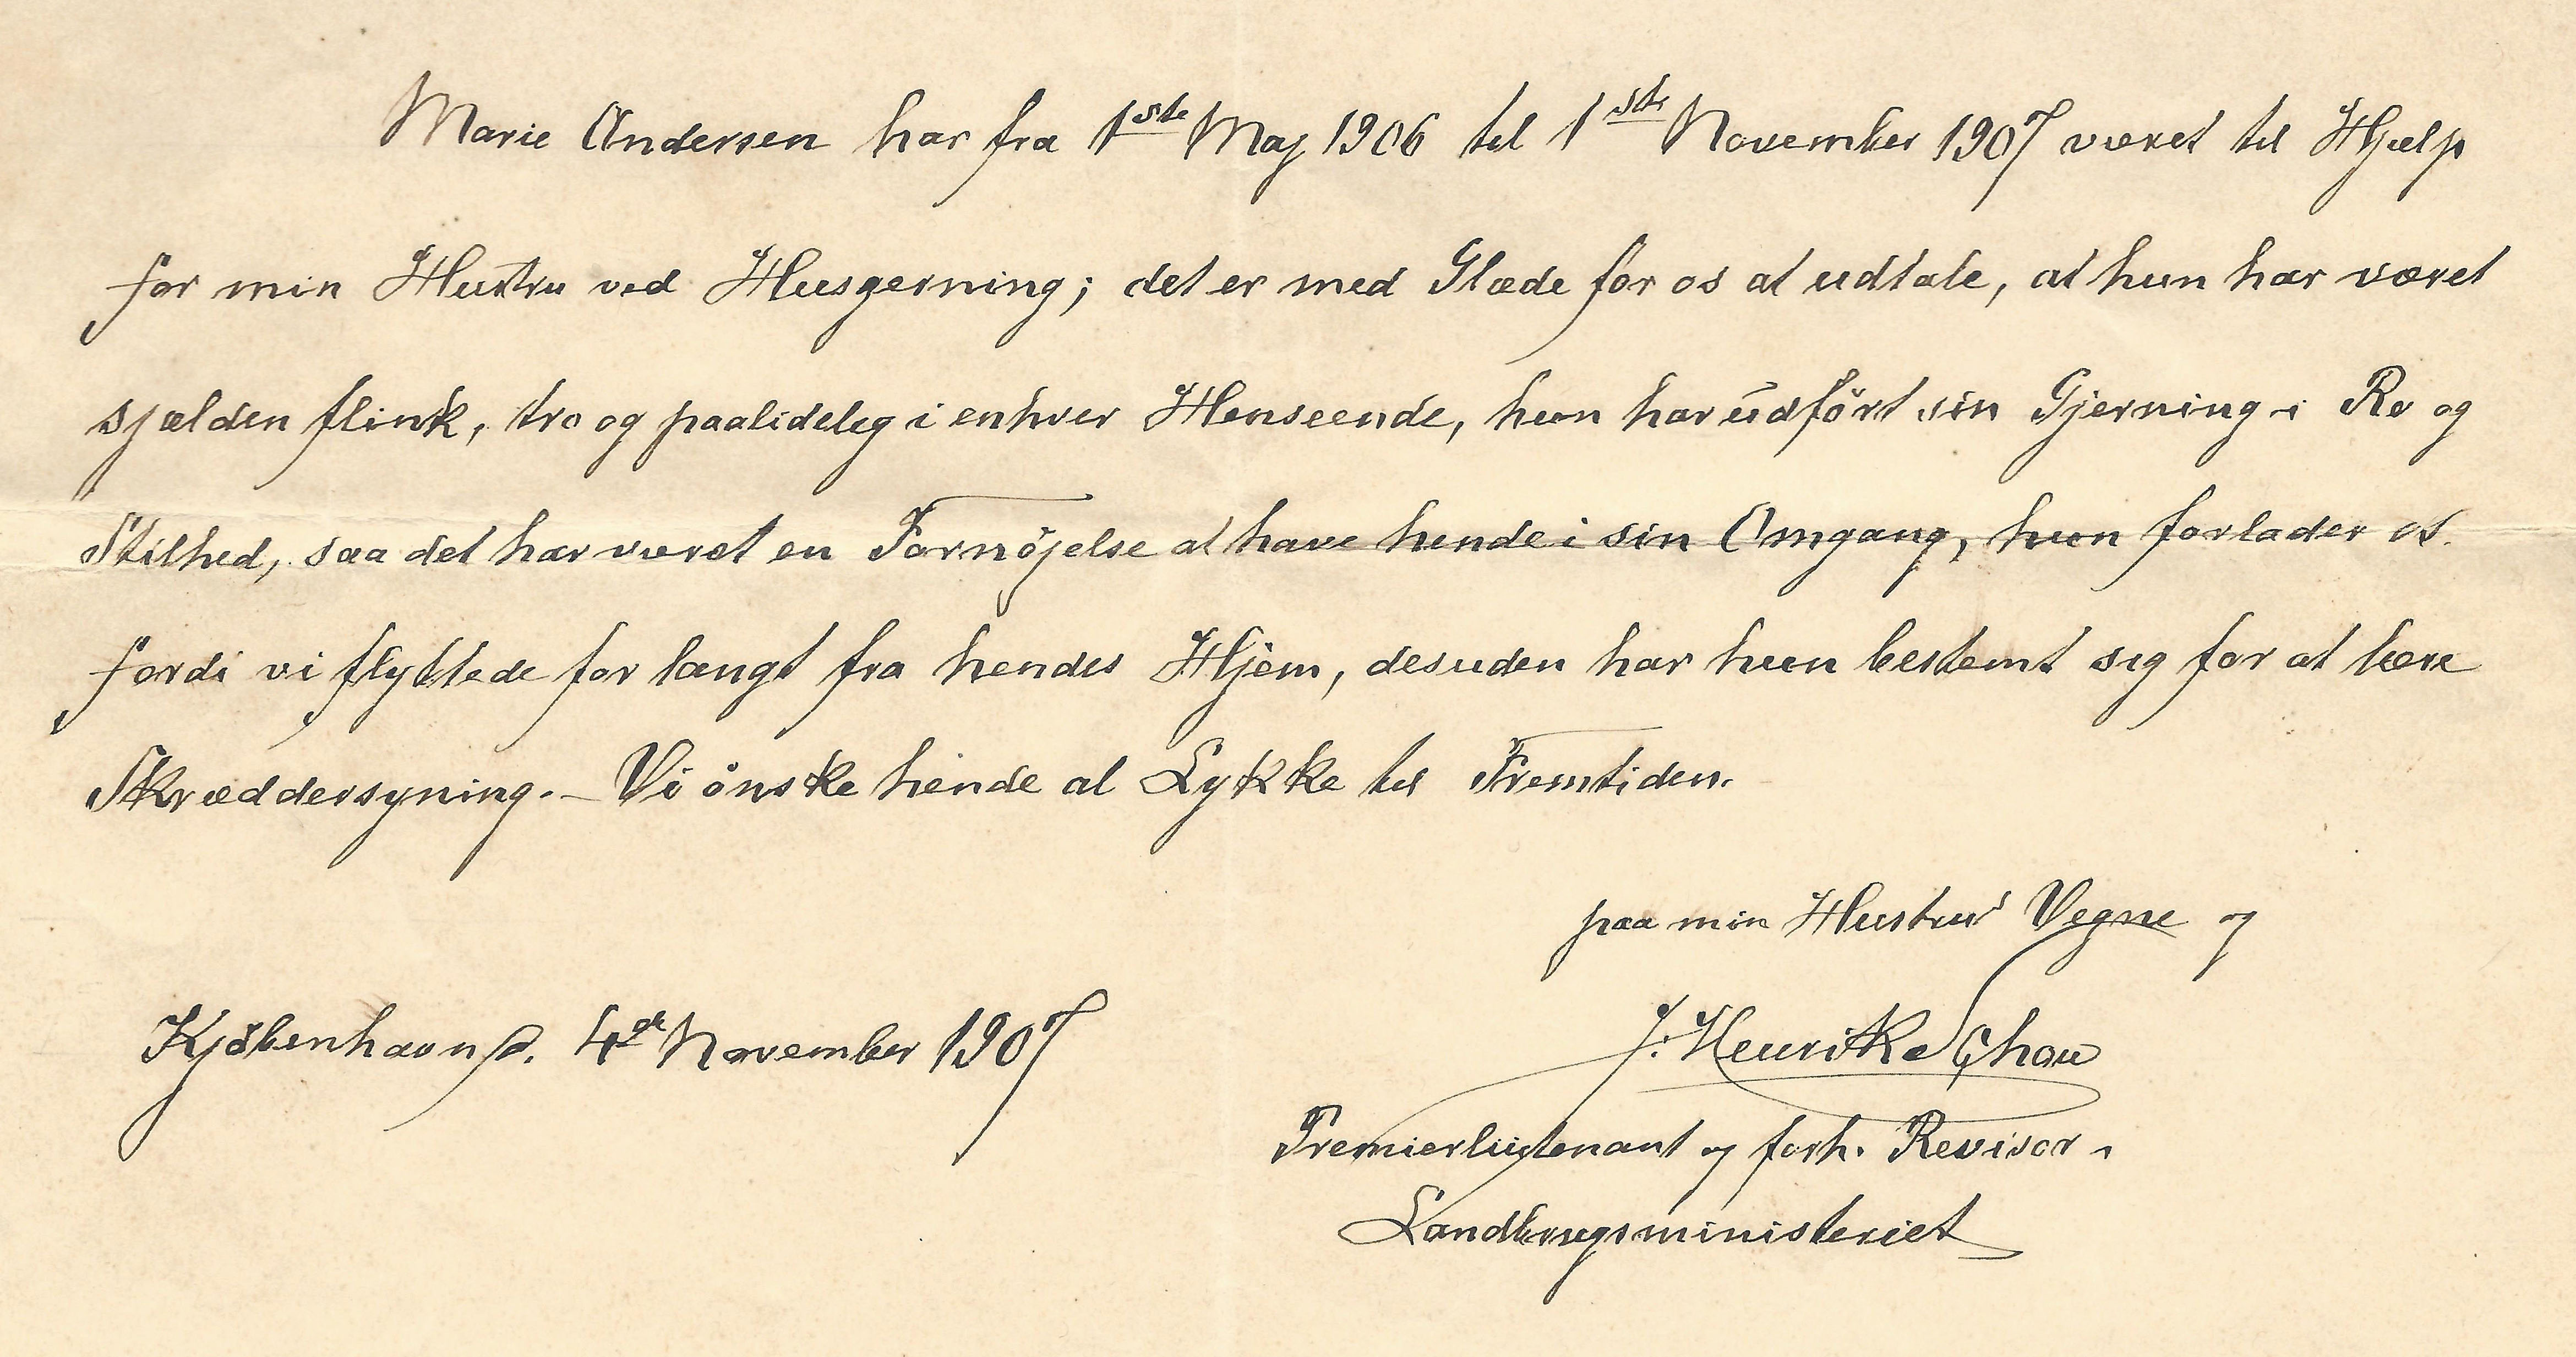 Marie Andersen har fra 1ste Maj 1906 til 1ste November 1907 været til Hjælp
for min Hustru ved Husgerning; det er med Glæde for os at udtale, at hun har været
sjælden flink, tro og paalidelig i enhver Henseende, hun har udført sin Gjerning i Ro og
Stilhed, saa det har været en Fornöjelse at have hende i sin Omgang, hun forlader os
fordi vi flyttede for langt fra hendes Hjem, desuden har hun bestemt sig for at lære
Skræddersyning. – Vi önske hende al Lykke til Fremtiden.
paa min Hustrus Vegne og
J. Henrik Schou
Kjöbenhavn, 4de November 1907
Premierlieutenant og forh. Revisor i
Landbrugsministeriet